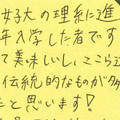 女子大の理系に進
年入学した者です
て美味しい。ここら辺
伝統的なものが多
たと思います!